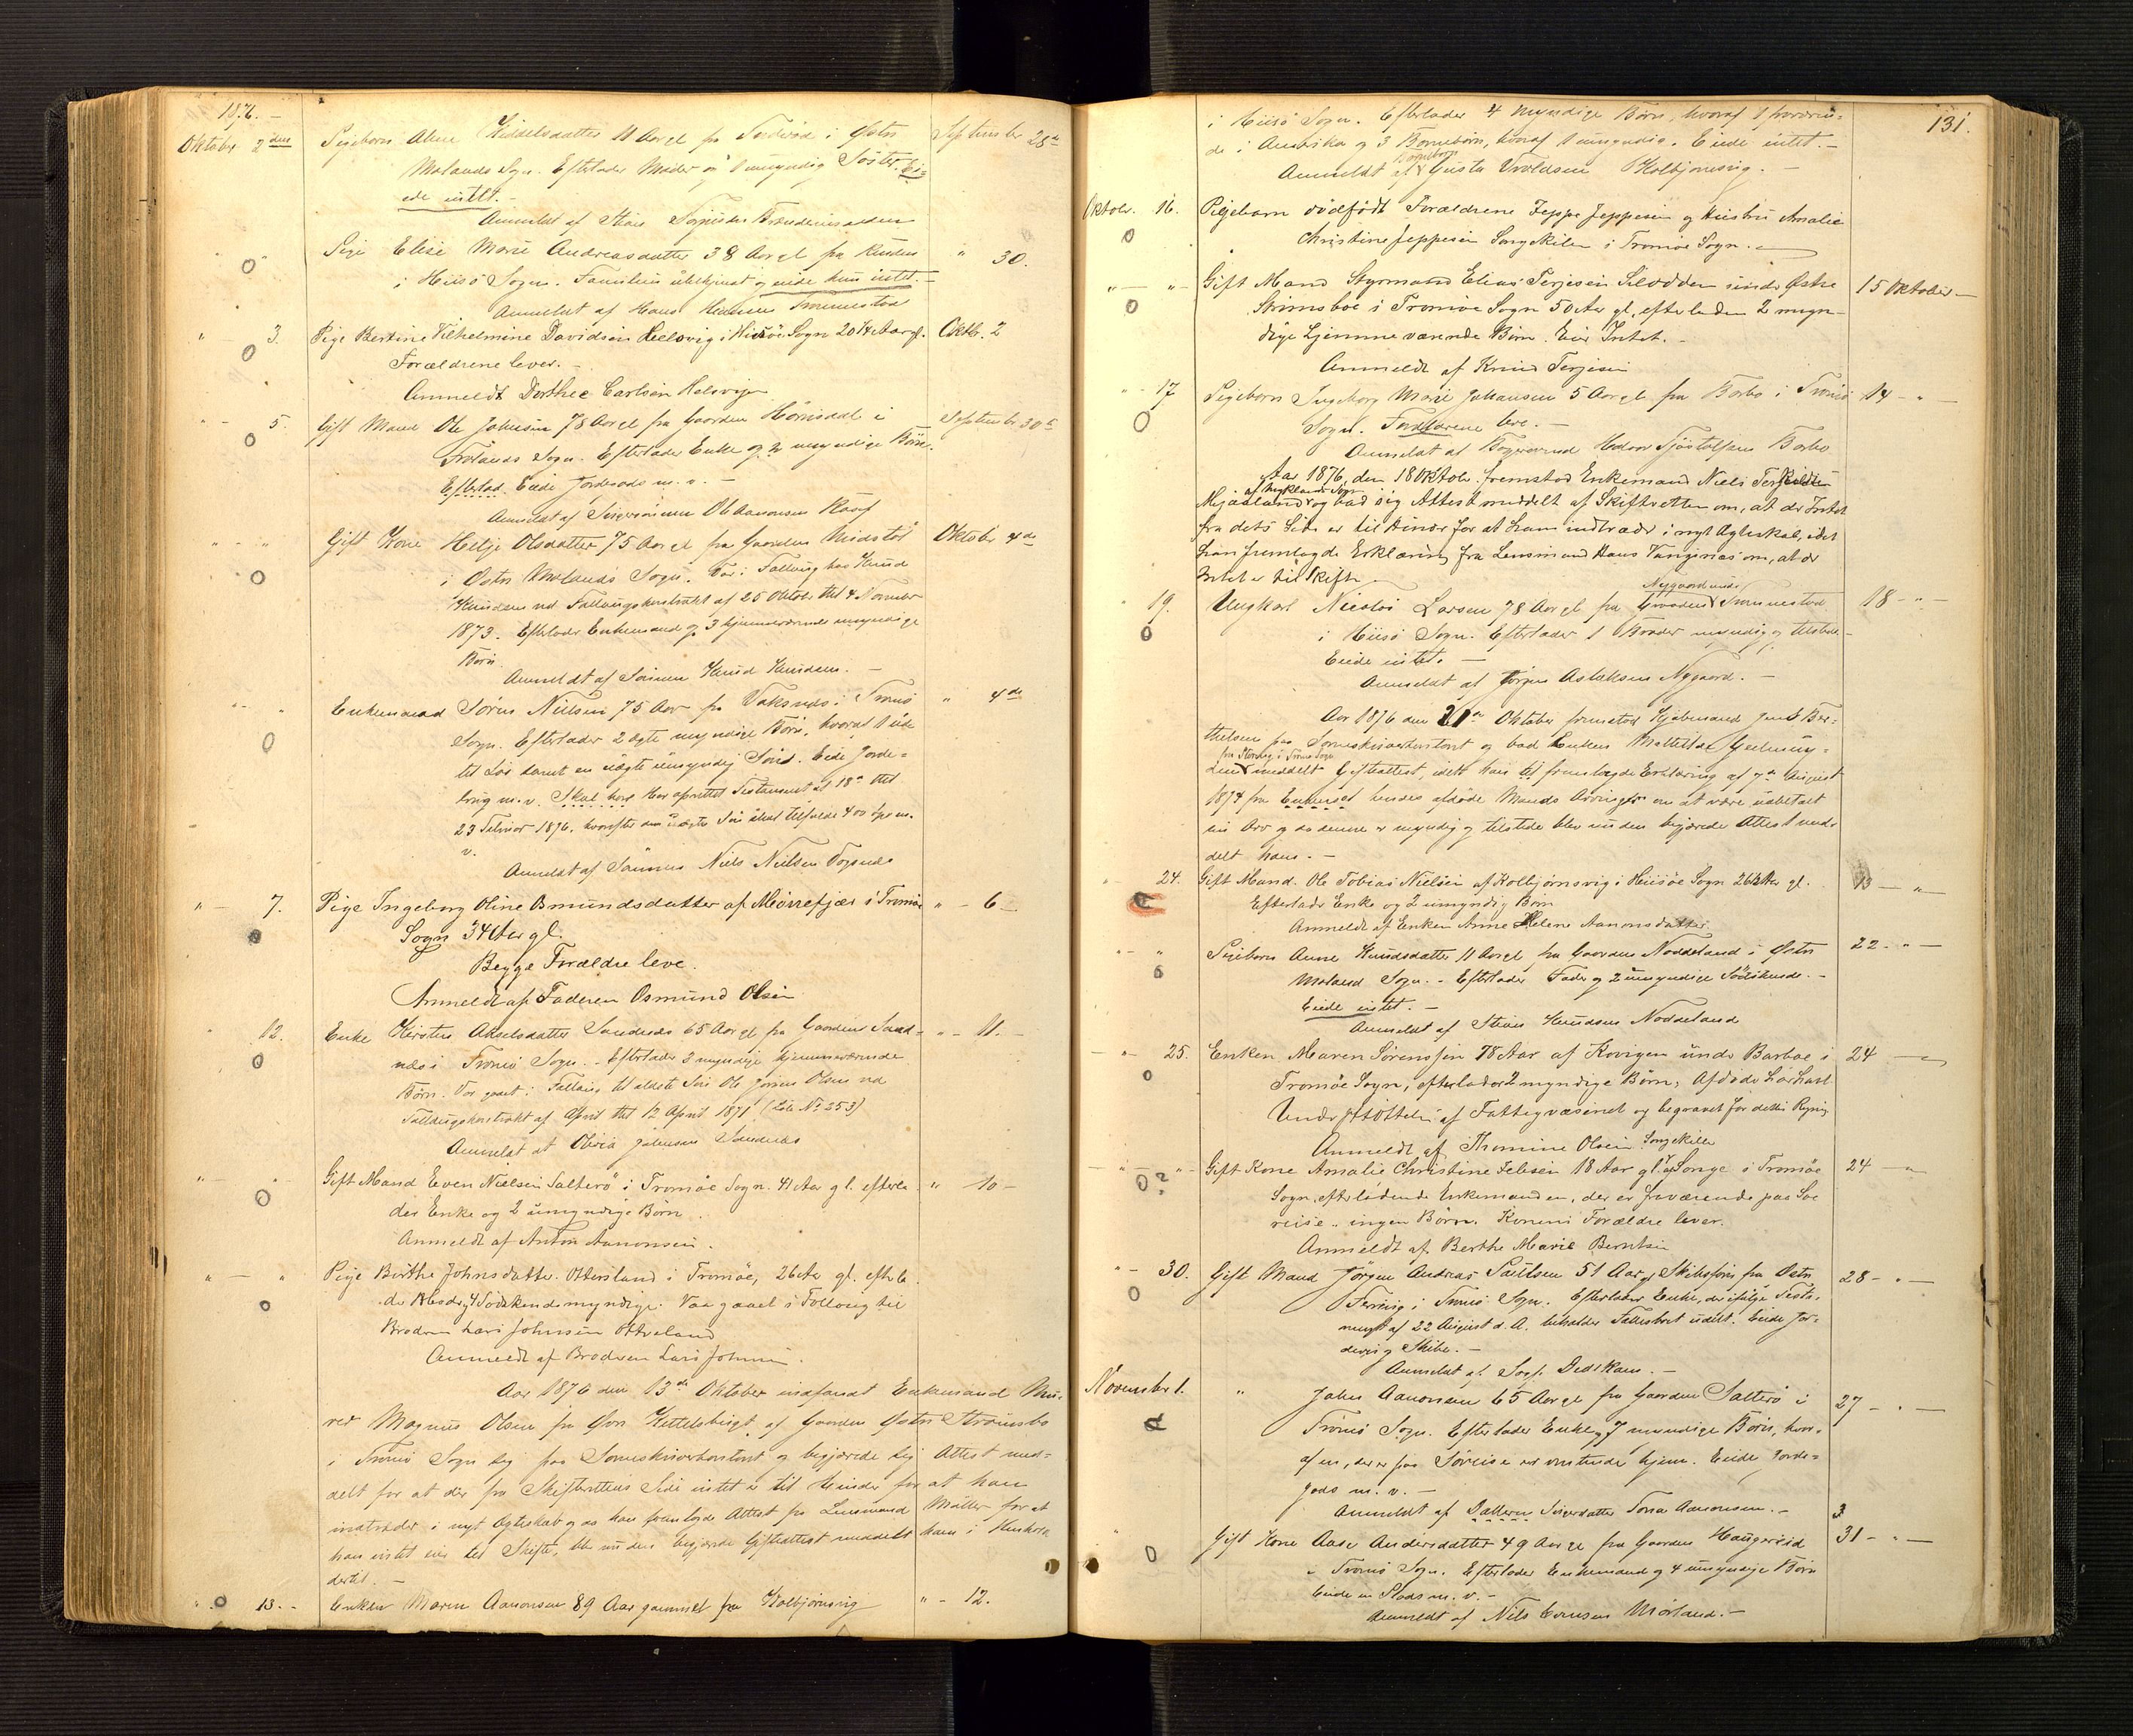 1876.
Oktober 2den Pigebarn Aline Kiddelsdatter 11 Aar gl fra i Østre September 28de
Molands Sogn. Efterlader Moder og 1 umyndig Søster. Ei-
ede intet.
Anmeldt af
Pige Elise Marie Andreasdatter 38 Aar gl fra " 30.
i Hisø Sogn. Familien ubekjendt og eiede hun intet.
Anmeldt af Hans
" 3. Pige Bertine Vilhelmine Davidsen Helsvig i Hisøe Sogn 20 1/4 Aar gl. Oktb. 2
Forældrene lever.
Anmeldt Dorthee Carlsen Helsvigen
" 5. Gift Mand Ole Johnsen 78 Aar gl fra Gaarden Hørnsdal i September 30de
Frolands Sogn. Efterlader Enke og 2 myndige Børn.
Eiede Jordegods m. v.
Anmeldt af Ole Aanonsen
" " Gift Kone Helje Olsdatter 75 Aar gl fra Gaarden Midstøl Oktober 4de
i Østre Molands Sogn. Var i Follaug hos Knud
Knudsen ved Follaugskontrakt af 25 Oktober thl 4 November
1873. Efterlader Enkemand og 3 hjemmeværende myndige
Børn
Anmeldt af Sønnen Knud Knudsen.
" " Enkemand Søren Nielsen 75 Aar fra Vaksnes i Tromø " 4de
Sogn. Efterlader 2 ægte myndige Børn, hvoraf 1 ude
til Søs samt en uægte umyndig Søn. Eiede Jorde-
brug m. v. Skal have Har oprettet Testament af 18de thl
23 Februar 1876, hvorefter den uægte Søn skal tilfalde 400 m.
v.
Anmeldt af Sønnen Niels Nielsen
" 7. Pige Ingeborg Oline Osmundsdatter af Mørrefjær i Tromøe " - 6 -
Sogn 34 Aar gl.
Begge Forældre leve.
Anmeldt af Faderen Osmund Olsen
" 12. Enke Kirsten Akselsdatter Sandnæs 65 Aar gl fra Gaarden Sand- " - 11. -
næs i Tromø Sogn. - Efterlader 3 myndige hjemmeværende
Børn. Var gaaet i Follaug til ældste Søn Ole Jørgen Olsen ved
Follaugskontrakt af April thl 12 April 1871 (Lit. No 253)
Anmeldt af Olivia Johnsen Sandnæs
" " Gift Mand Even Nielsen Salterø i Tromøe Sogn. 41 Aar gl. efterla- " 10 -
der Enke og 2 umyndige Børn
Anmeldt af Anton Aanonsen.
" " Pige Birthe Johnsdatter Ottersland i Tromøe, 26 Aar gl. efterla-
der Moder, 4 Sødskende myndige. Var gaaet i Follaug til
Broderen Lars Johnsen
Anmeldt af Broderen Lars Johnsen.
Aar 1876 den 13de Oktober indfandt Enkemand Mu-
rer Magnus Olsen fra Øvre Kittelsbugt af Gaarden Østre Strømsbo
i Tromø Sogn sig paa Sorenskriverkontoret og begjærede sig Attest med-
delt for at der fra Skifterettens Side intet er til Hinder for at han
indtræder i nyt Ægteskab og da han fremlagde Attest fra Lensmand Møller for at
han intet eier til Skifte, blev den begjærede Gifteattest meddelt ham i Henhold
dertil.
" 13. - Enken Maren Aanonsen 89 Aar gammel fra Kolbjørnsvig " - 12.
131.
i Hisø Sogn. Efterlader 4 myndige Børn, hvoraf 1 fraværen-
de i Amerika og 3 Børnebørn, hvoraf 1 umyndig. Eiede intet. -
Anmeldt af Barnebarn Gusta Kolbjørnsvig. -
Oktober. 16. Pigebarn dødfødt Forældrene Jeppe Jeppesen og Hustru Amalie
Christine Jeppesen Songekilen i Tromøe Sogn. -
" - " - Gift Mand Styrmand Elias Terjesen under Østre 15 Oktober -
Strømsboe i Tromøe Sogn 50 Aar gl, efterladen 2 myn-
dige hjemmeværende Børn. Eier Intet. -
Anmeldt af Knud Terjesen
" - 17 Pigebarn Ingeborg Marie Johansen 5 Aar gl fra Barbo i Tromø 14 - " -
Sogn. Forældrene leve. -
Anmeldt af Barbo
Aar 1876, den 18 Oktobr. fremstod Enkemand Niels Terkildsen
Mjaaland af Myklands Sogn og bad sig Attest meddelt af Skifteretten om, at der Intet
fra dets Side er til Hinder for at ham indtræder i nyt Ægteskab, idet
han fremlagde Erklæring fra Lensmand Hans Vangsnes om, at der
Intet er til Skifte. -
" 19. Ungkarl Nicolai Larsen 78 Aar gl fra Gaarden Nygaard under 18 - " -
i Hisø Sogn. Efterlader 1 Broder myndig og tilstede -
Eiede intet. -
Anmeldt af Jørgen Aslaksen Nygaard. -
Aar 1876 den 21de Oktober fremstod Kjøbmand Jens Ber-
thelsen paa Sorenskriverkontoret og bad Enken Mathilde
fra i Tromø Sogn meddelt Gifteattest, idet han fremlagde Erklæring af 7de August
1874 fra hendes afdøde Mands Arvinger om at være udbetalt
sin Arv og da denne er myndig og tilstede blev den begjærede Attest med-
delt ham. -
" 24. Gift Mand. Ole Tobias Nielsen af Kolbjørnsvig i Hisøe Sogn 26 Aar gl. 13 - " -
Efterlader Enke og 2 umyndig Børn
Anmeldt af Enken Anne Helene Aanonsdatter
" " Pigebarn Anne Knudsdatter 11 Aar gl fra Gaarden Noddeland i Østre 22 - " -
Moland Sogn. - Efterlader Fader og 2 umyndige Sødskende. -
Eiede intet. -
Anmeldt af Knudsen Noddeland
" - 25. Enken Maren Sørensen 78 Aar af Kovigen under Barboe i 24 -
Tromøe Sogn, efterlader 2 myndige Børn, Afdøde har havt
Understøttelse af Fattigvæsenet og begravet for dettes Regning
Anmeldt af Thomine Olsen Songekilen
- " - " - Gift Kone Amalie Christine Jebsen 18 Aar gl. af Songe i Tromøe 24 - " -
Sogn, efterladende Enkemanden, der er fraværende paa Sø-
reise - ingen Børn. Konens Forældre lever.
Anmeldt af Berthe Marie Berntsen
" - 30. Gift Mand Jørgen Andreas 51 Aar gl Skibsfører fra Østre 28 - " -
i Tromø Sogn. Efterlader Enke, der ifølge Testa-
ment af 22 August d. A. beholder Fællesboet udelt. Eiede Jor-
devei og Skibe. -
Anmeldt af
November 1. " John Aanonsen 65 Aar gl fra Gaarden Salterø i 27 - " -
Tromø Sogn. Efterlader Enke, 7 myndige Børn, hvor-
af en, der er paa Søreise er ventende hjem. Eiede Jorde-
gods m. v. -
Anmeldt af Datteren Aanonsen. -
" Gift Kone Aase Andersdatter 49 Aar gl fra Gaarden Haugereid 31 - " -
i Tromø Sogn. Efterlader Enkemand og 4 umyndige Børn
Eiede en Plads m. v. -
Anmeldt af Niels Evensen Mørland. -